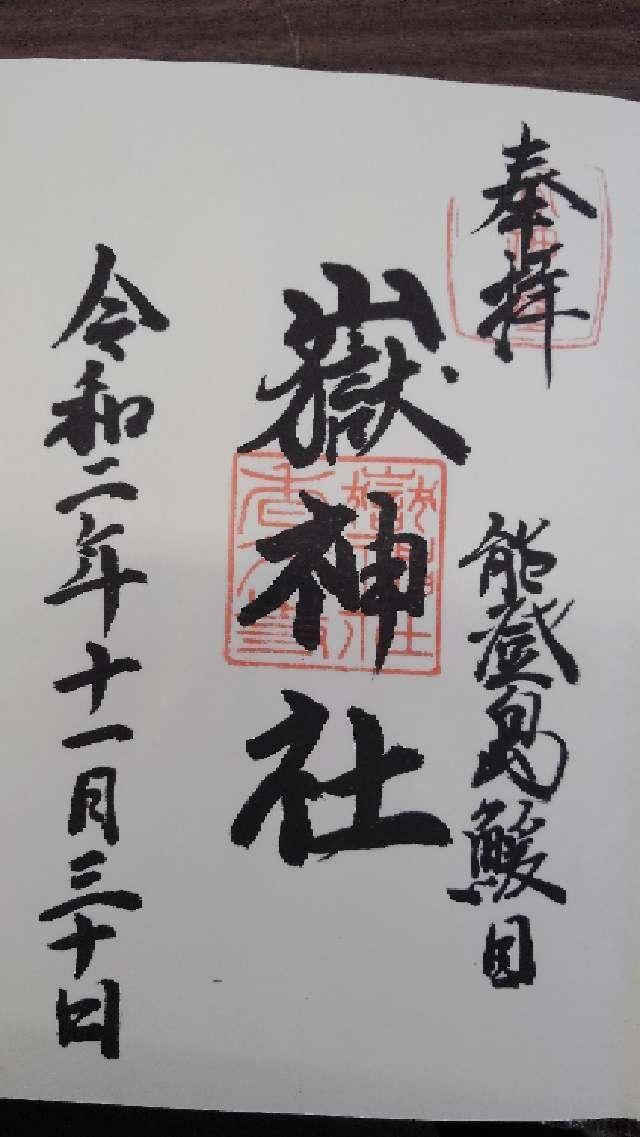 奉拝
能登島鰀目
嶽神社
令和二年十一月三十日